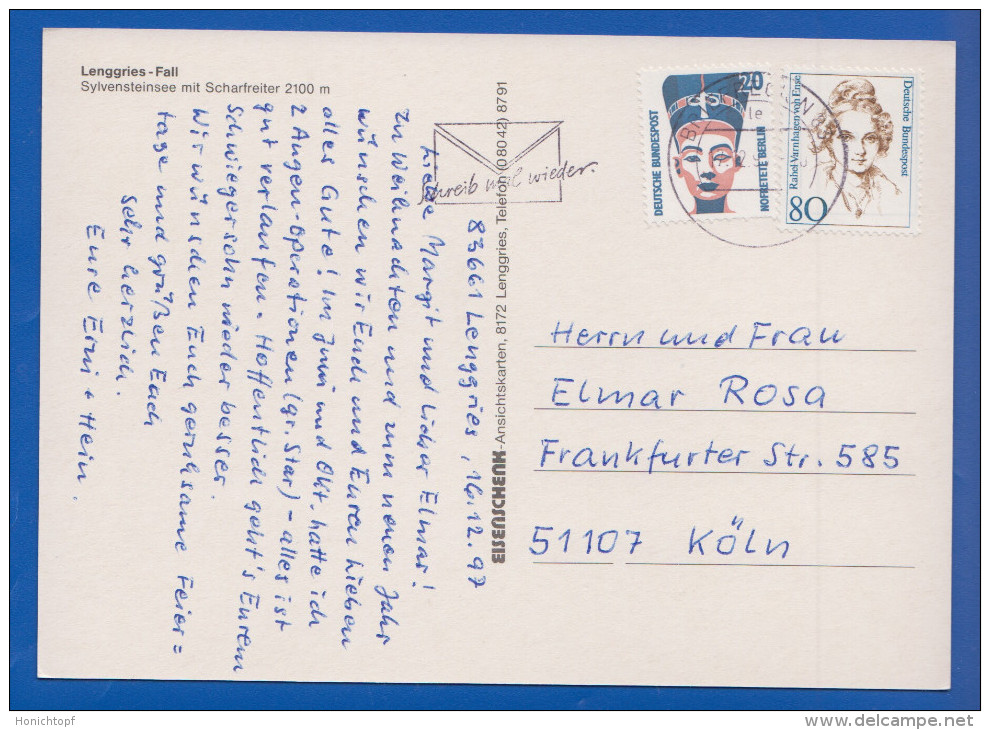 Lenggries-Fall
Sylvensteinsee mit Scharfreiter 2100 m
83661 Lenggries, 16.12.97
Liebe Margit und lieber Elmar!
Zu Weihnachten und zum neuen Jahr
wünschen wir Euch und Euren lieben
alles Gute! Im Juni und Okt. hatte ich
2 Augen-Operationen (gr. Star) - alles ist
gut verlaufen. Hoffentlich geht's Eurem
Schwiegersohn wieder besser.
Wir wünschen Euch geruhsame Feier=
tage und grüßen Euch
sehr herzlich.
Eure Erni + Hein.
EISENSCHENK-Ansichtskarten, 8172 Lenggries, Telefon (0 80 42) 87 91
Schreib mal wieder.
20
DEUTSCHE BUNDESPOST
NOFRETETE BERLIN
Rahel Varnhagen von Ense
Deutsche Bundespost
80
Herrn und Frau
Elmar Rosa
Frankfurter Str. 585
51107 Köln
Honichtopf
www.delcampe.net